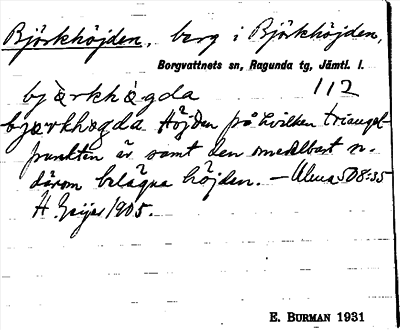 Björkhöjden, berg i Björkhöjden,
Borgvattnets sn, Ragunda tg, Jämtl. l.
bjàrkhàgda 112
bjarkhagda Höjden på hvilken triangel-
punkten är samt den omedelbart n.
därom belägna höjden. – Ulma 508:35
H. Geijer 1905.
E. BURMAN 1931